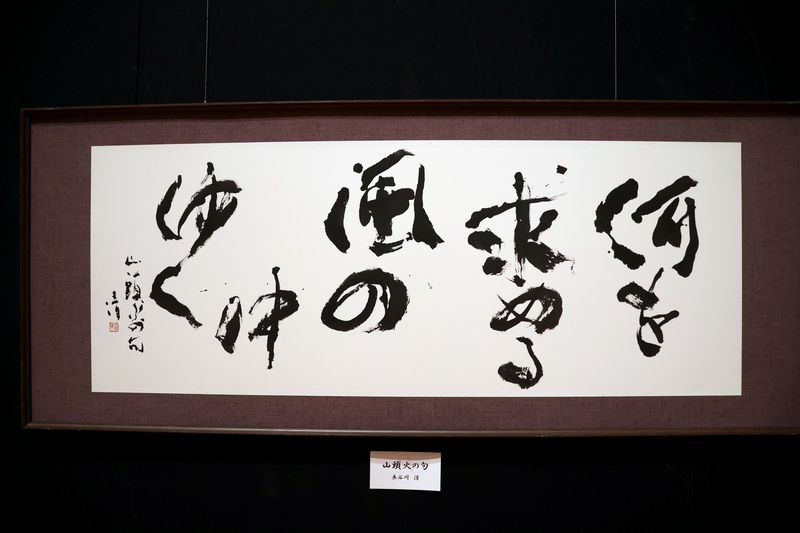 何を
求める
風の
中
ゆく
山頭火の句
山頭火の句
長谷川 清